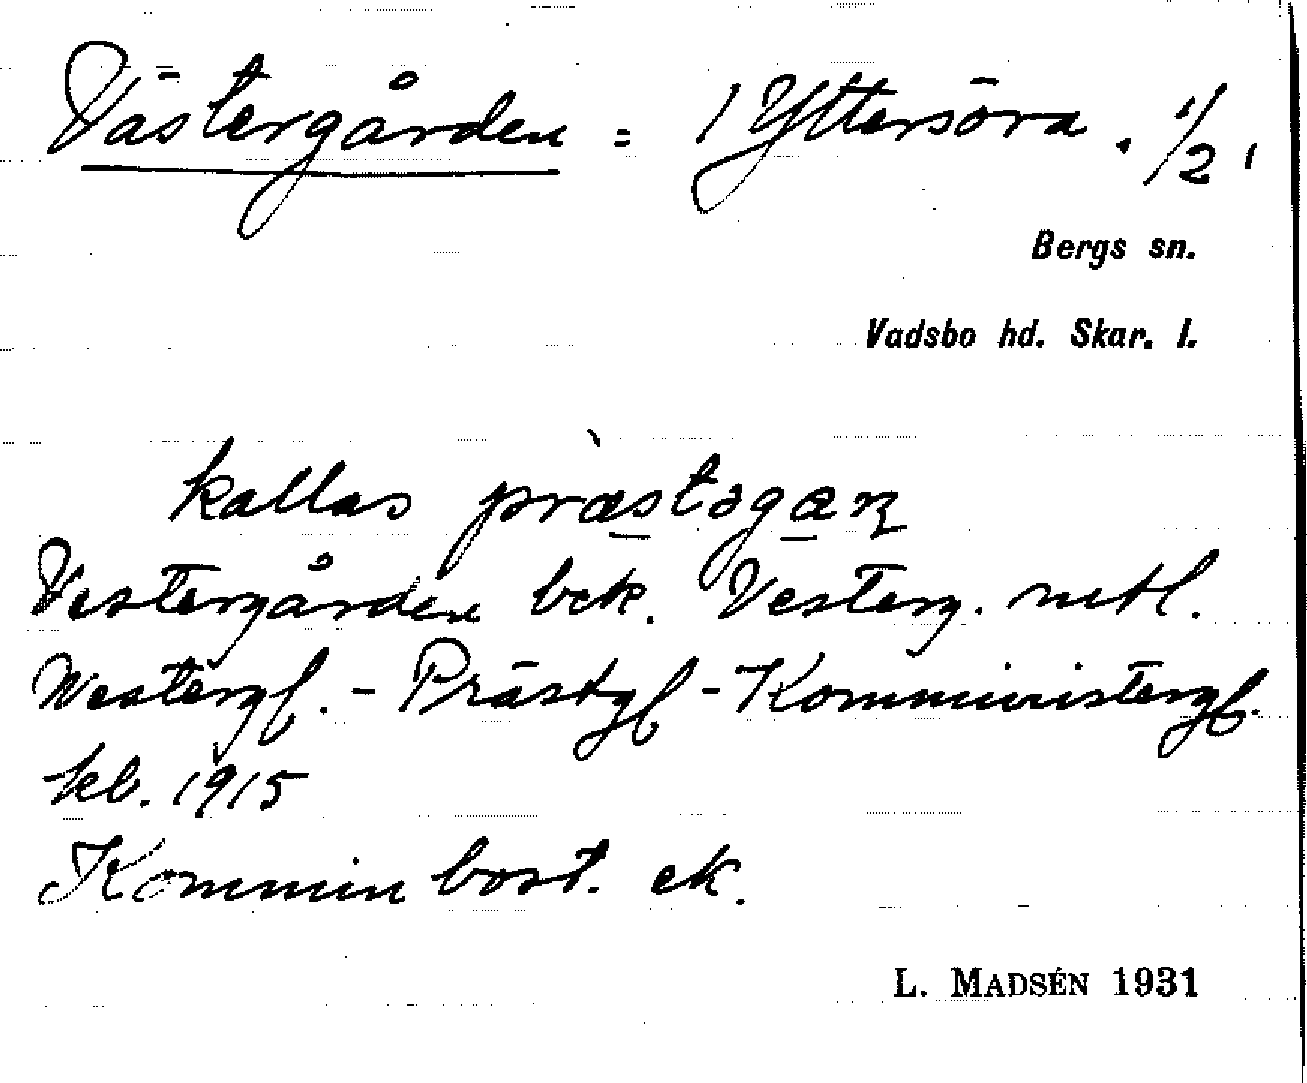 Västergården = 1 Yttersöra. 1/2,
Bergs sn.
Vadsbo hd. Skar. l.
kallas præstəgæn
Vestergården bek. Vesterg. mtl.
Westergf. - Prästgf - Komministergf.
kb. 1915
Kommin bost. ek.
L. MADSÉN 1931